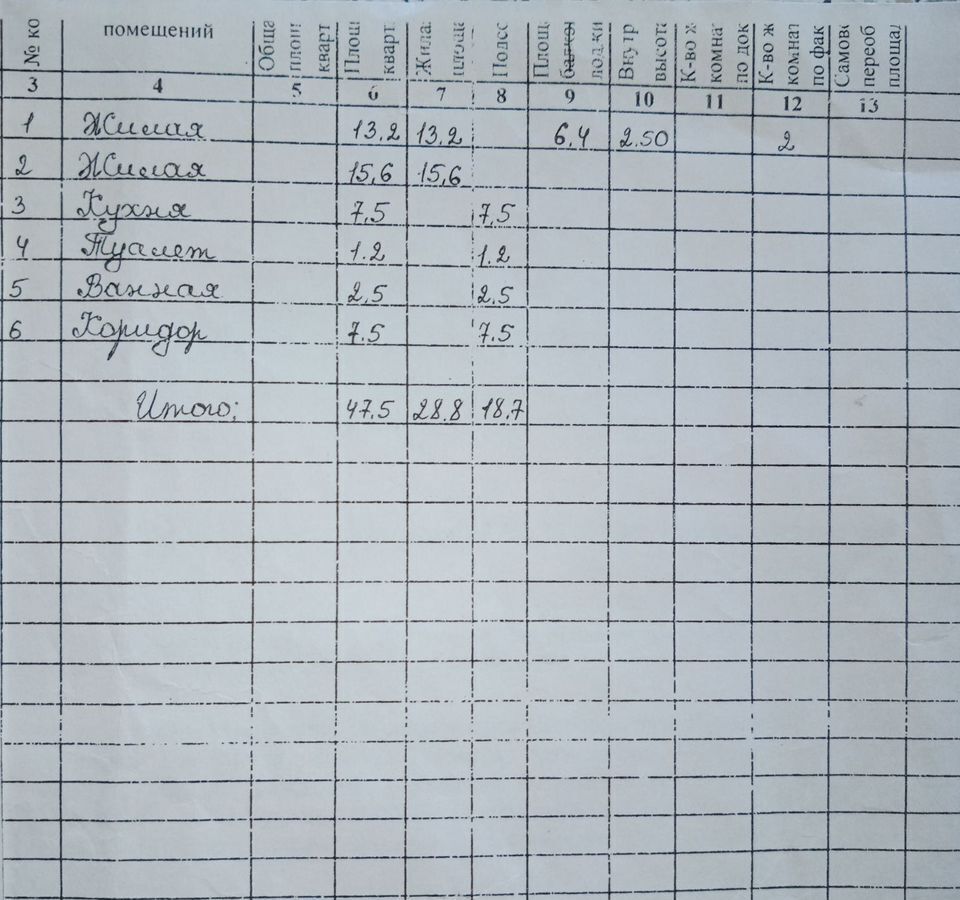 № ко помещений Обща площ кварт Площ кварт Жила площ Подсо Площ балкон лоджи Внутр высот К-во ж комнат по док К-во ж комнат по фак Самово переоб площад
3 4 5 6 7 8 9 10 11 12 13
1 Жилая 13,2 13,2 6,4 2.50 2
2 Жилая 15,6 15,6
3 Кухня 7,5 7,5
4 Туалет 1.2 1.2
5 Ванная 2,5 2,5
6 Коридор 7.5 7.5
Итого: 47.5 28.8 18.7